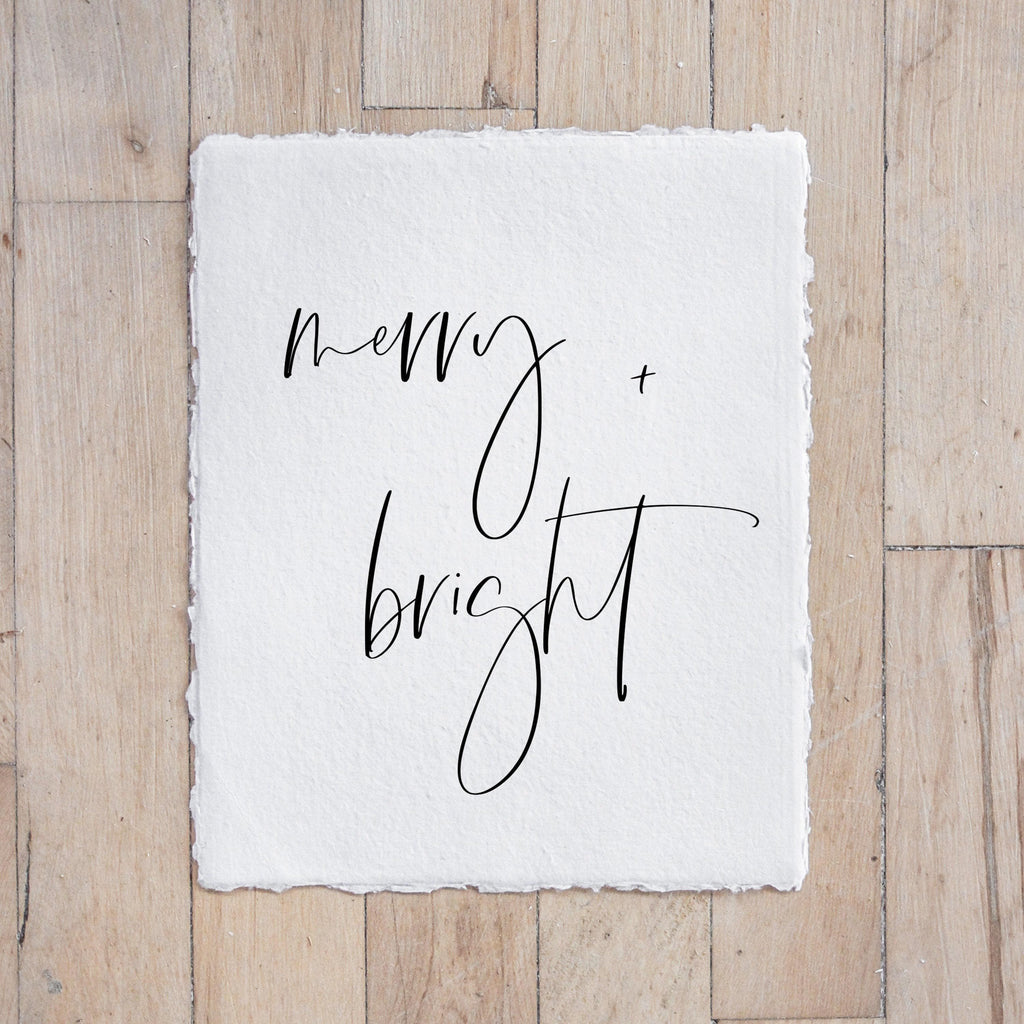 merry +
bright